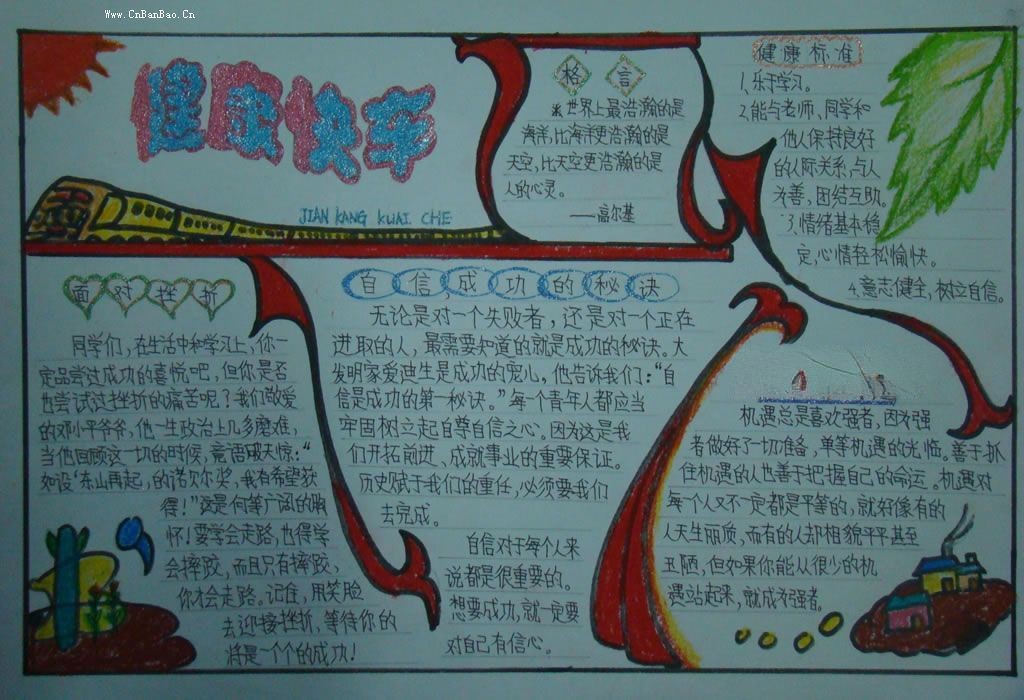 Www.CnBanBao.Cn
健康快车
JIAN KANG KUAI CHE
格言
※世界上最浩瀚的是
海洋,比海洋更浩瀚的是
天空,比天空更浩瀚的是
人的心灵。
——高尔基
健康标准
1.乐于学习。
2.能与老师、同学和
他人保持良好
的人际关系,与人
为善,团结互助。
3.情绪基本稳
定,心情轻松愉快。
4.意志健全,树立自信。
面对挫折
同学们,在生活中和学习上,你一
定品尝过成功的喜悦吧,但你是否
也尝试过挫折的痛苦呢?我们敬爱
的邓小平爷爷,他一生政治上几多磨难,
当他回顾这一切的时候,竟语破天惊:“
如设‘东山再起’的诺贝尔奖,我有希望获
得!”这是何等广阔的胸
怀!要学会走路,也得学
会摔跤,而且只有摔跤,
你才会走路。记住,用笑脸
去迎接挫折,等待你的
将是一个个的成功!
自信,成功的秘诀
无论是对一个失败者,还是对一个正在
进取的人,最需要知道的就是成功的秘诀。大
发明家爱迪生是成功的宠儿,他告诉我们:“自
信是成功的第一秘诀。”每个青年人都应当
牢固树立起自尊自信之心。因为这是我
们开拓前进、成就事业的重要保证。
历史赋于我们的重任,必须要我们
去完成。
自信对于每个人来
说都是很重要的。
想要成功,就一定要
对自己有信心。
机遇总是喜欢强者,因为强
者做好了一切准备,单等机遇的光临。善于抓
住机遇的人也善于把握自己的命运。机遇对
每个人又不一定都是平等的,就好像有的
人天生丽质,而有的人却相貌平平甚至
丑陋,但如果你能从很少的机
遇站起来,就成为强者。